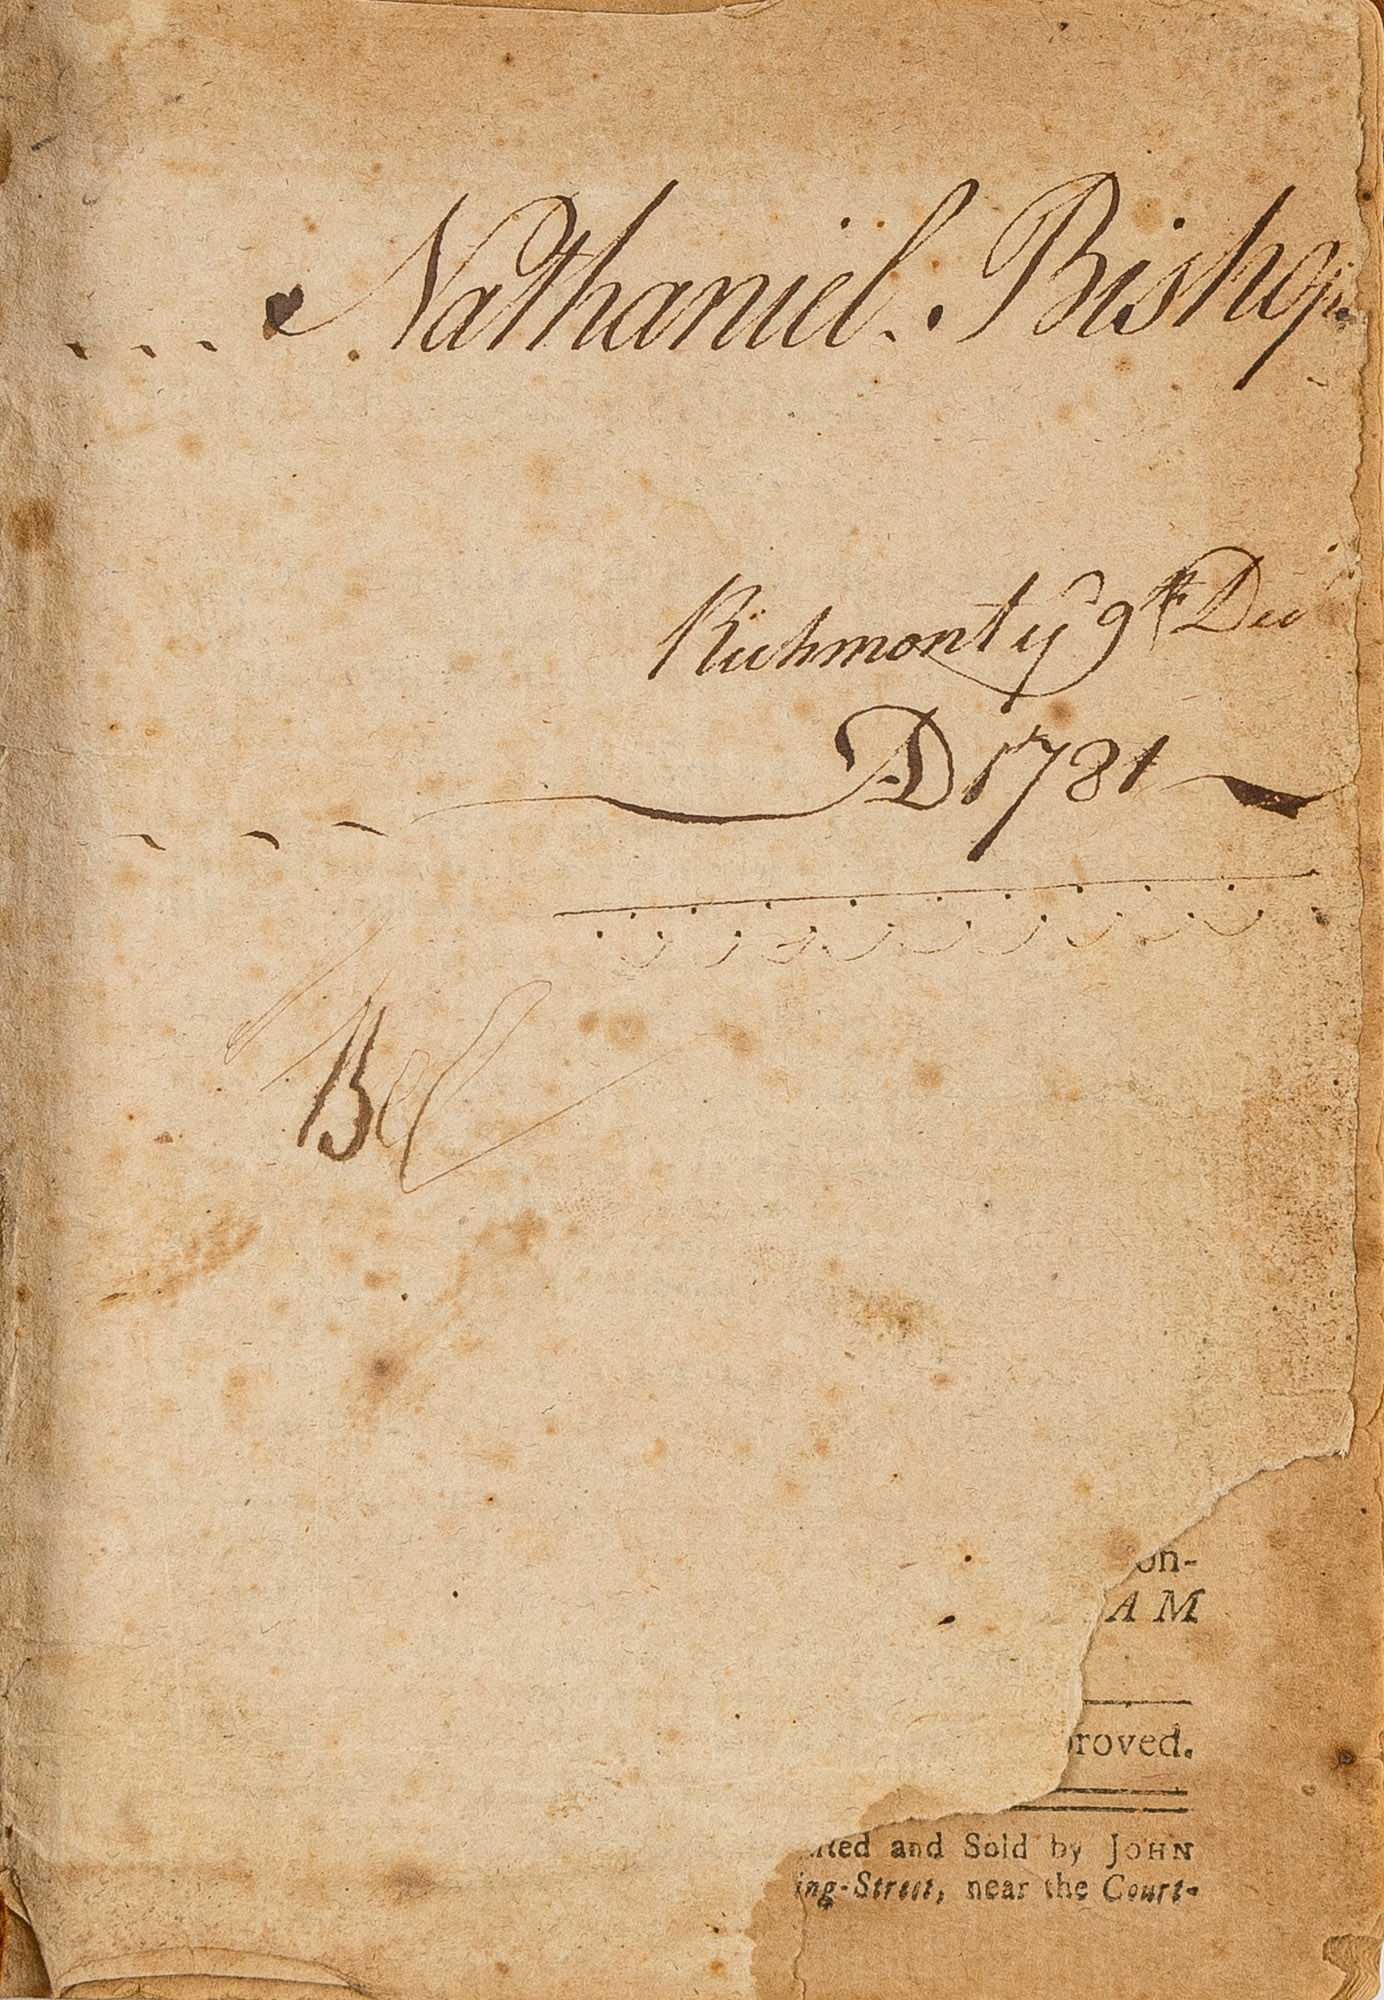 Nathaniel. Bishop.
Richmont yͤ 9th Dec
AD 1781
B
on-
AM
roved.
ted and Sold by JOHN
ing-Street, near the Court-